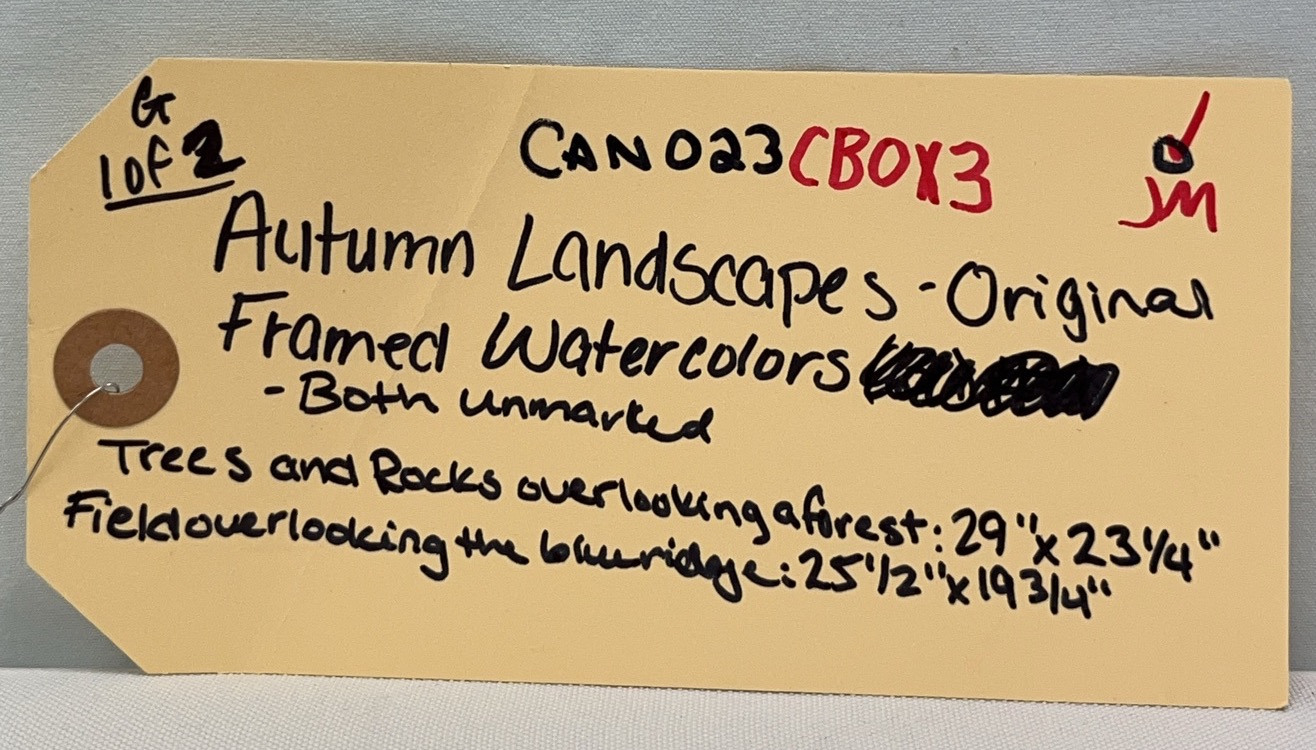 G
1 of 2
CAN023CBOX3
JM
Autumn Landscapes - Original
Framed Watercolors
- Both unmarked
Trees and Rocks overlooking a forest: 29" x 23 1/4"
Field overlooking the blueridge: 25 1/2" x 19 3/4"